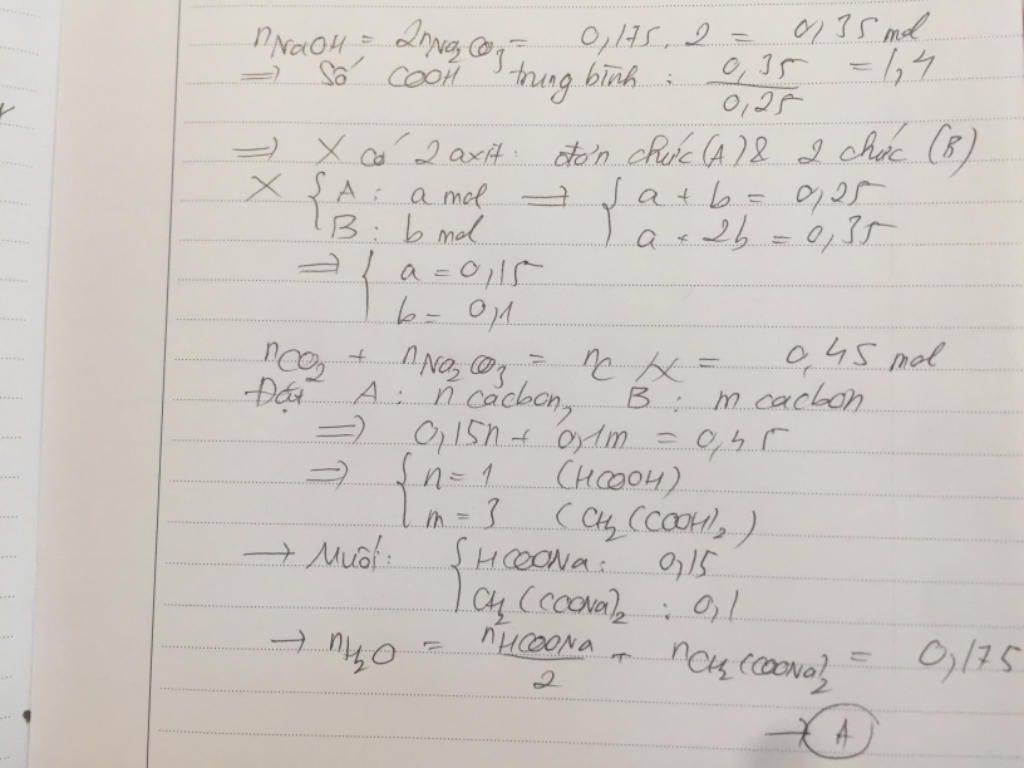 nNaOH = 2nNa2CO3 = 0,175 . 2 = 0,35 mol
=> Số COOH trung bình : 0,35/0,25 = 1,4
=> X có 2 axit : đơn chức (A) & 2 chức (B)
X { A : a mol => { a + b = 0,25
B : b mol a + 2b = 0,35
=> { a = 0,15
b = 0,1
nCO2 + nNa2CO3 = nC/X = 0,45 mol
Đặt A : n cacbon, B : m cacbon
=> 0,15n + 0,1m = 0,45
=> { n = 1 (HCOOH)
m = 3 (CH2(COOH)2)
→ Muối : { HCOONa : 0,15
CH2(COONa)2 : 0,1
→ nH2O = nHCOONa/2 + nCH2(COONa)2 = 0,175
→ A